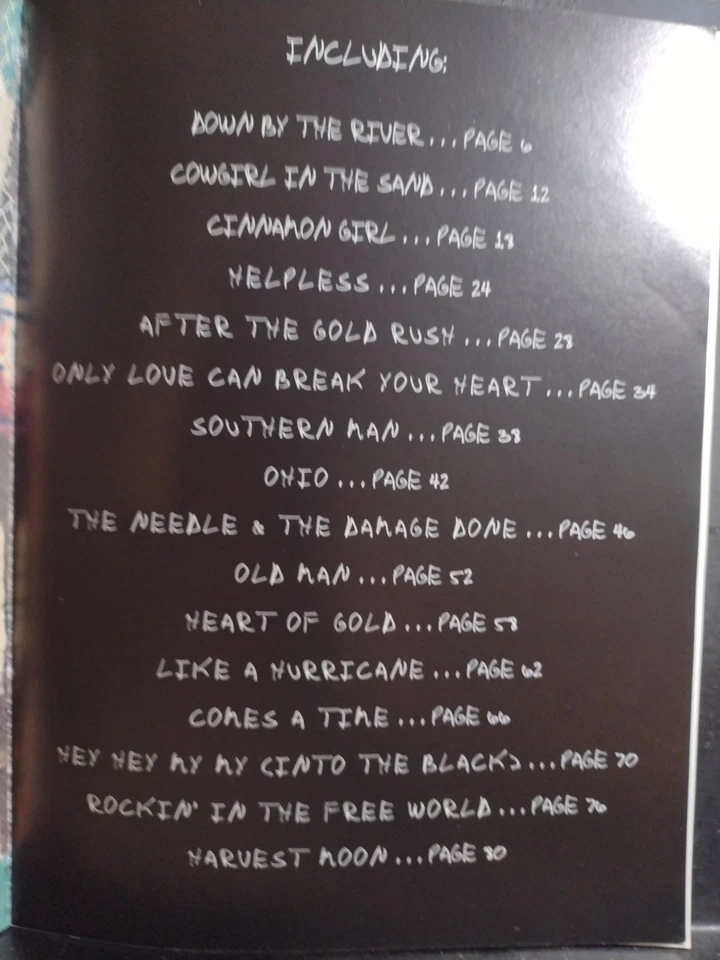 INCLUDING:
DOWN BY THE RIVER...PAGE 6
COWGIRL IN THE SAND...PAGE 12
CINNAMON GIRL...PAGE 18
HELPLESS...PAGE 24
AFTER THE GOLD RUSH...PAGE 28
ONLY LOVE CAN BREAK YOUR HEART...PAGE 34
SOUTHERN MAN...PAGE 38
OHIO...PAGE 42
THE NEEDLE & THE DAMAGE DONE...PAGE 46
OLD MAN...PAGE 52
HEART OF GOLD...PAGE 58
LIKE A HURRICANE...PAGE 62
COMES A TIME...PAGE 66
HEY HEY MY MY (INTO THE BLACK)...PAGE 70
ROCKIN' IN THE FREE WORLD...PAGE 76
HARVEST MOON...PAGE 80